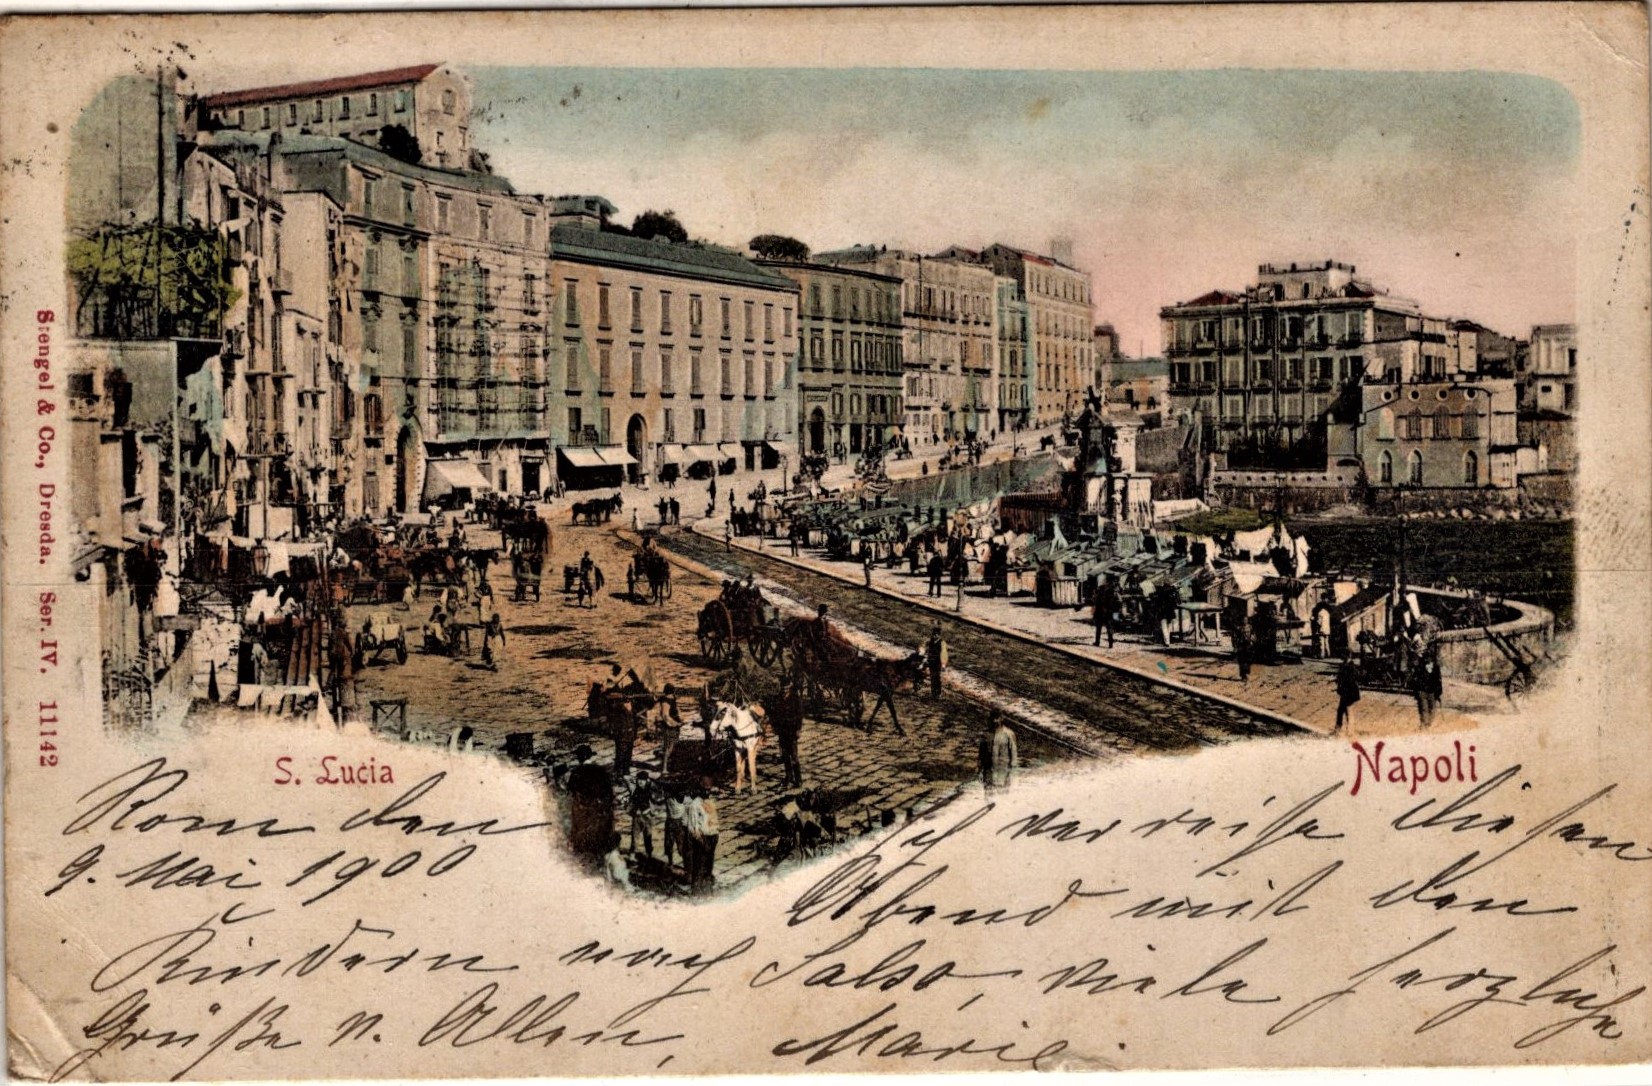 Stengel & Co., Dresda. Ser. IV. 11142
S. Lucia
Napoli
Rom den
9. Mai 1900
Ich verreise diesen
Abend mit den
Kindern nach Salso, viele herzliche
Grüße v. Allen, Marie.